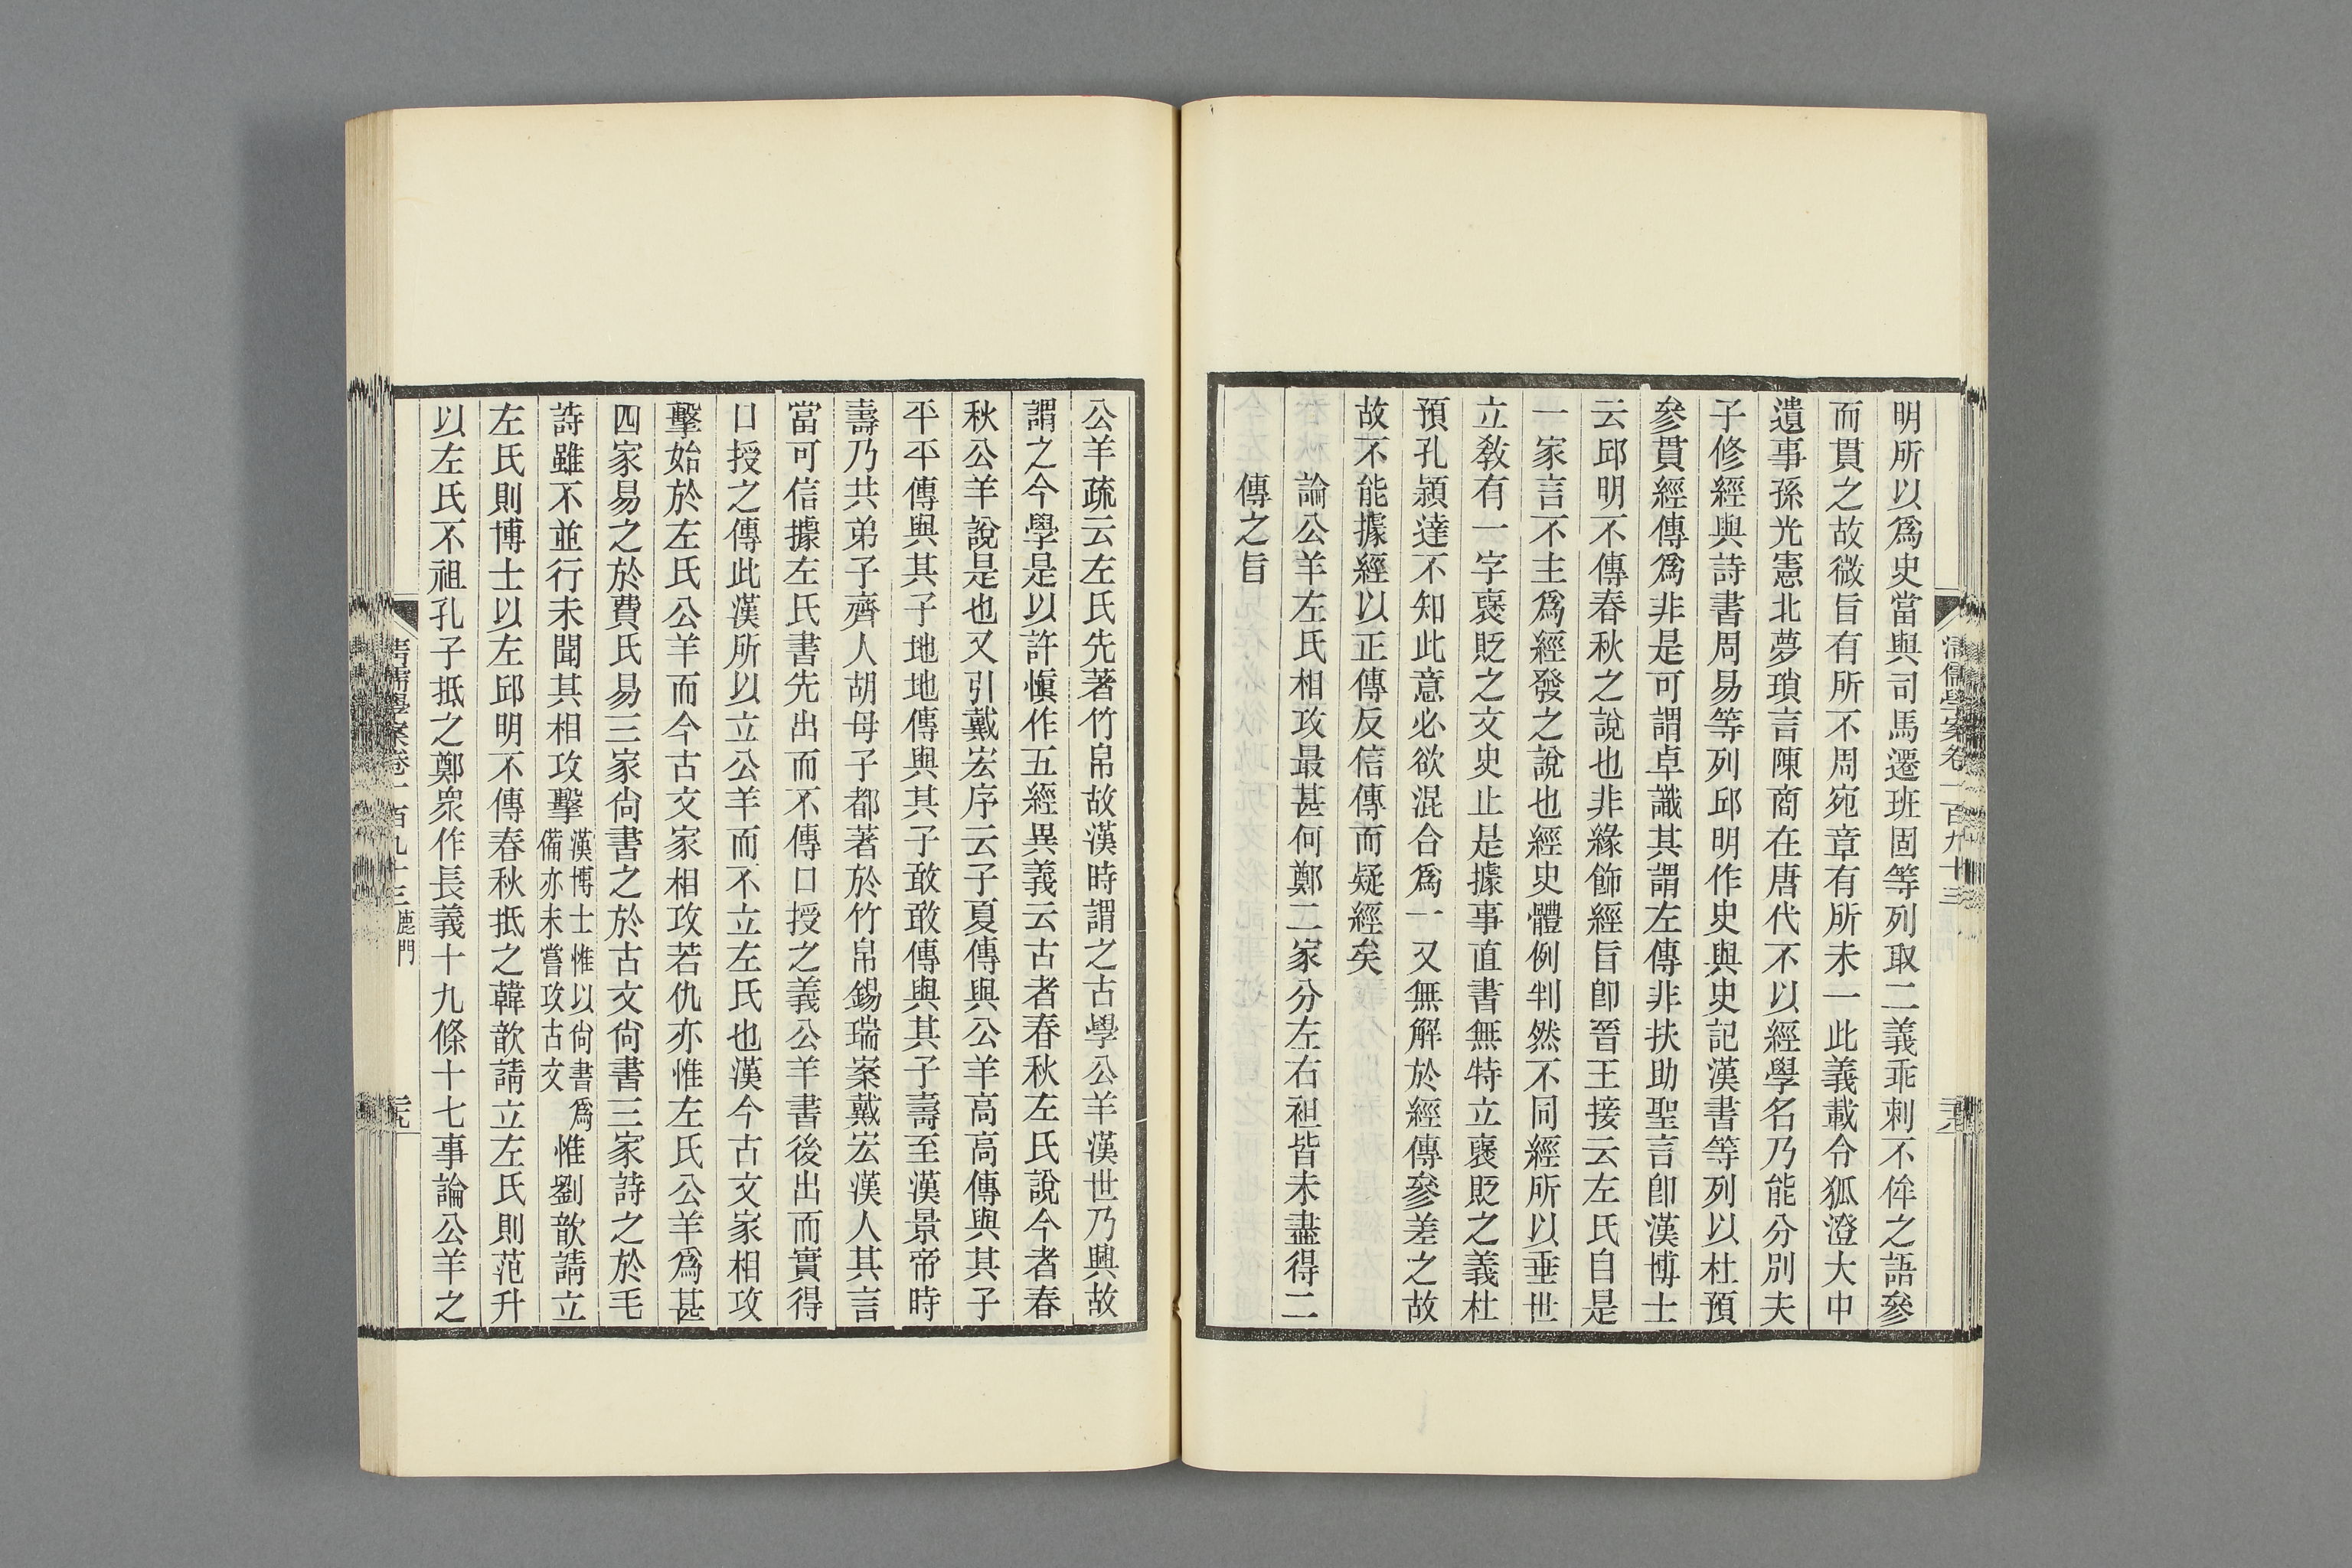 明所以爲史當與司馬遷班固等列取二義乖刺不侔之語參
而貫之故微旨有所不周宛章有所未一此義載令狐澄大中
遺事孫光憲北夢瑣言陳商在唐代不以經學名乃能分別夫
子修經與詩書周易等列邱明作史與史記漢書等列以杜預
參貫經傳爲非是可謂卓識其謂左傳非扶助聖言卽漢博士
云邱明不傳春秋之說也非緣飾經旨卽晉王接云左氏自是
一家言不主爲經發之說也經史體例判然不同經所以垂世
立敎有一字襃貶之文史止是據事直書無特立襃貶之義杜
預孔穎達不知此意必欲混合爲一又無解於經傳參差之故
故不能據經以正傳反信傳而疑經矣
論公羊左氏相攻最甚何鄭二家分左右袒皆未盡得二
傳之旨
公羊疏云左氏先著竹帛故漢時謂之古學公羊漢世乃興故
謂之今學是以許愼作五經異義云古者春秋左氏說今者春
秋公羊說是也又引戴宏序云子夏傳與公羊高高傳與其子
平平傳與其子地地傳與其子敢敢傳與其子壽至漢景帝時
壽乃共弟子齊人胡母子都著於竹帛錫瑞案戴宏漢人其言
當可信據左氏書先出而不傳口授之義公羊書後出而實得
口授之傳此漢所以立公羊而不立左氏也漢今古文家相攻
擊始於左氏公羊而今古文家相攻若仇亦惟左氏公羊爲甚
四家易之於費氏易三家尙書之於古文尙書三家詩之於毛
詩雖不並行未聞其相攻擊漢博士惟以尙書爲備亦未嘗攻古文惟劉歆請立
左氏則博士以左邱明不傳春秋抵之韓歆請立左氏則范升
以左氏不祖孔子抵之鄭衆作長義十九條十七事論公羊之
清儒學案卷一百九十三 鹿門